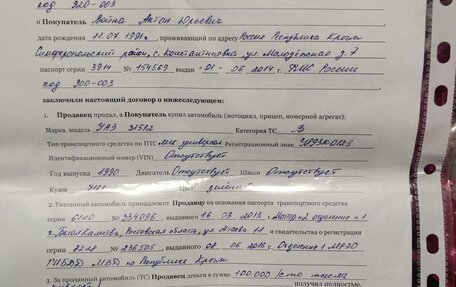 код 920-003
и Покупатель Война Антон Юрьевич
дата рождения 11.07.1991г., проживающий по адресу Россия Республика Крым
Симферопольский район, с. Константиновка ул. Молодёжная д. 7
паспорт серии 3914 № 154569 выдан «01» 06 2014 г. ФМС России
код 900-003
заключили настоящий договор о нижеследующем:
1. Продавец продал, а Покупатель купил автомобиль (мотоцикл, прицеп, номерной агрегат):
Марка, модель УАЗ 31512 Категория ТС В
Тип транспортного средства по ПТС универсал Регистрационный знак
Идентификационный номер (VIN) Отсутствует
Год выпуска 1990 Двигатель Отсутствует Шасси Отсутствует
Кузов Цвет зелёный
2. Указанный автомобиль принадлежит Продавцу на основании паспорта транспортного средства
серии № 234096, выданного 16 03 2013 отделения №1
г. Белая Калитва, Ростовская область, ул. и свидетельства о регистрации
серии № 236505, выданного 08.06.2016 Отделение 1 МРЭО
ГИБДД МВД по Республике Крым
3. За проданный автомобиль (ТС) Продавец деньги в сумме 100.000 (сто тысяч
получил полностью.